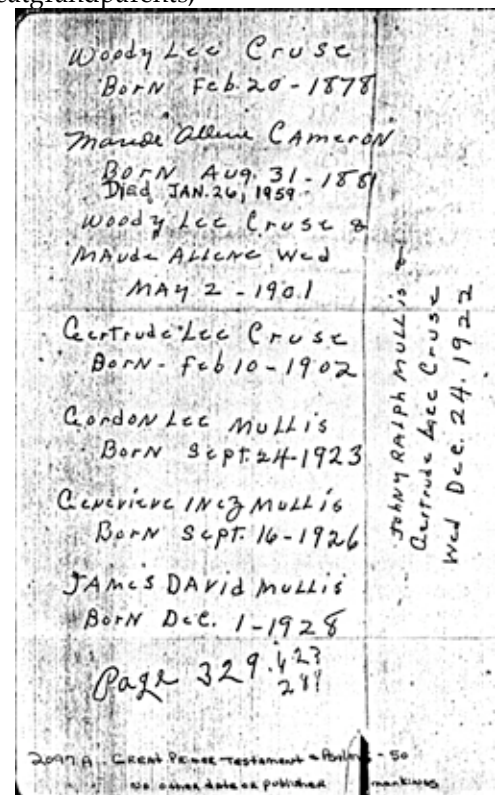 eatgrandparents)
Woody Lee Cruse
Born Feb. 20 - 1878
Maude Allene Cameron
Born Aug. 31 - 1881
Died JAN. 26, 1959
Woody Lee Cruse &
MAude Allene Wed
MAY 2 - 1901
Gertrude Lee Cruse
Born - Feb 10 - 1902
Gordon Lee Mullis
Born Sept. 24 - 1923
Genevieve INez Mullis
Born Sept. 16 - 1926
JAMes DAvid Mullis
Born Dec. 1 - 1928
Page 329. 423
289
Johny RAlph Mullis &
Gertrude Lee Cruse
Wed Dec. 24. 1922
2097 A. Great Primer Testament & Psalms - 50
no other date or publisher markings